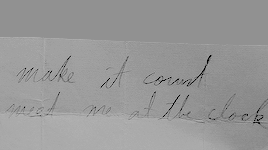 make it count
meet me at the clock